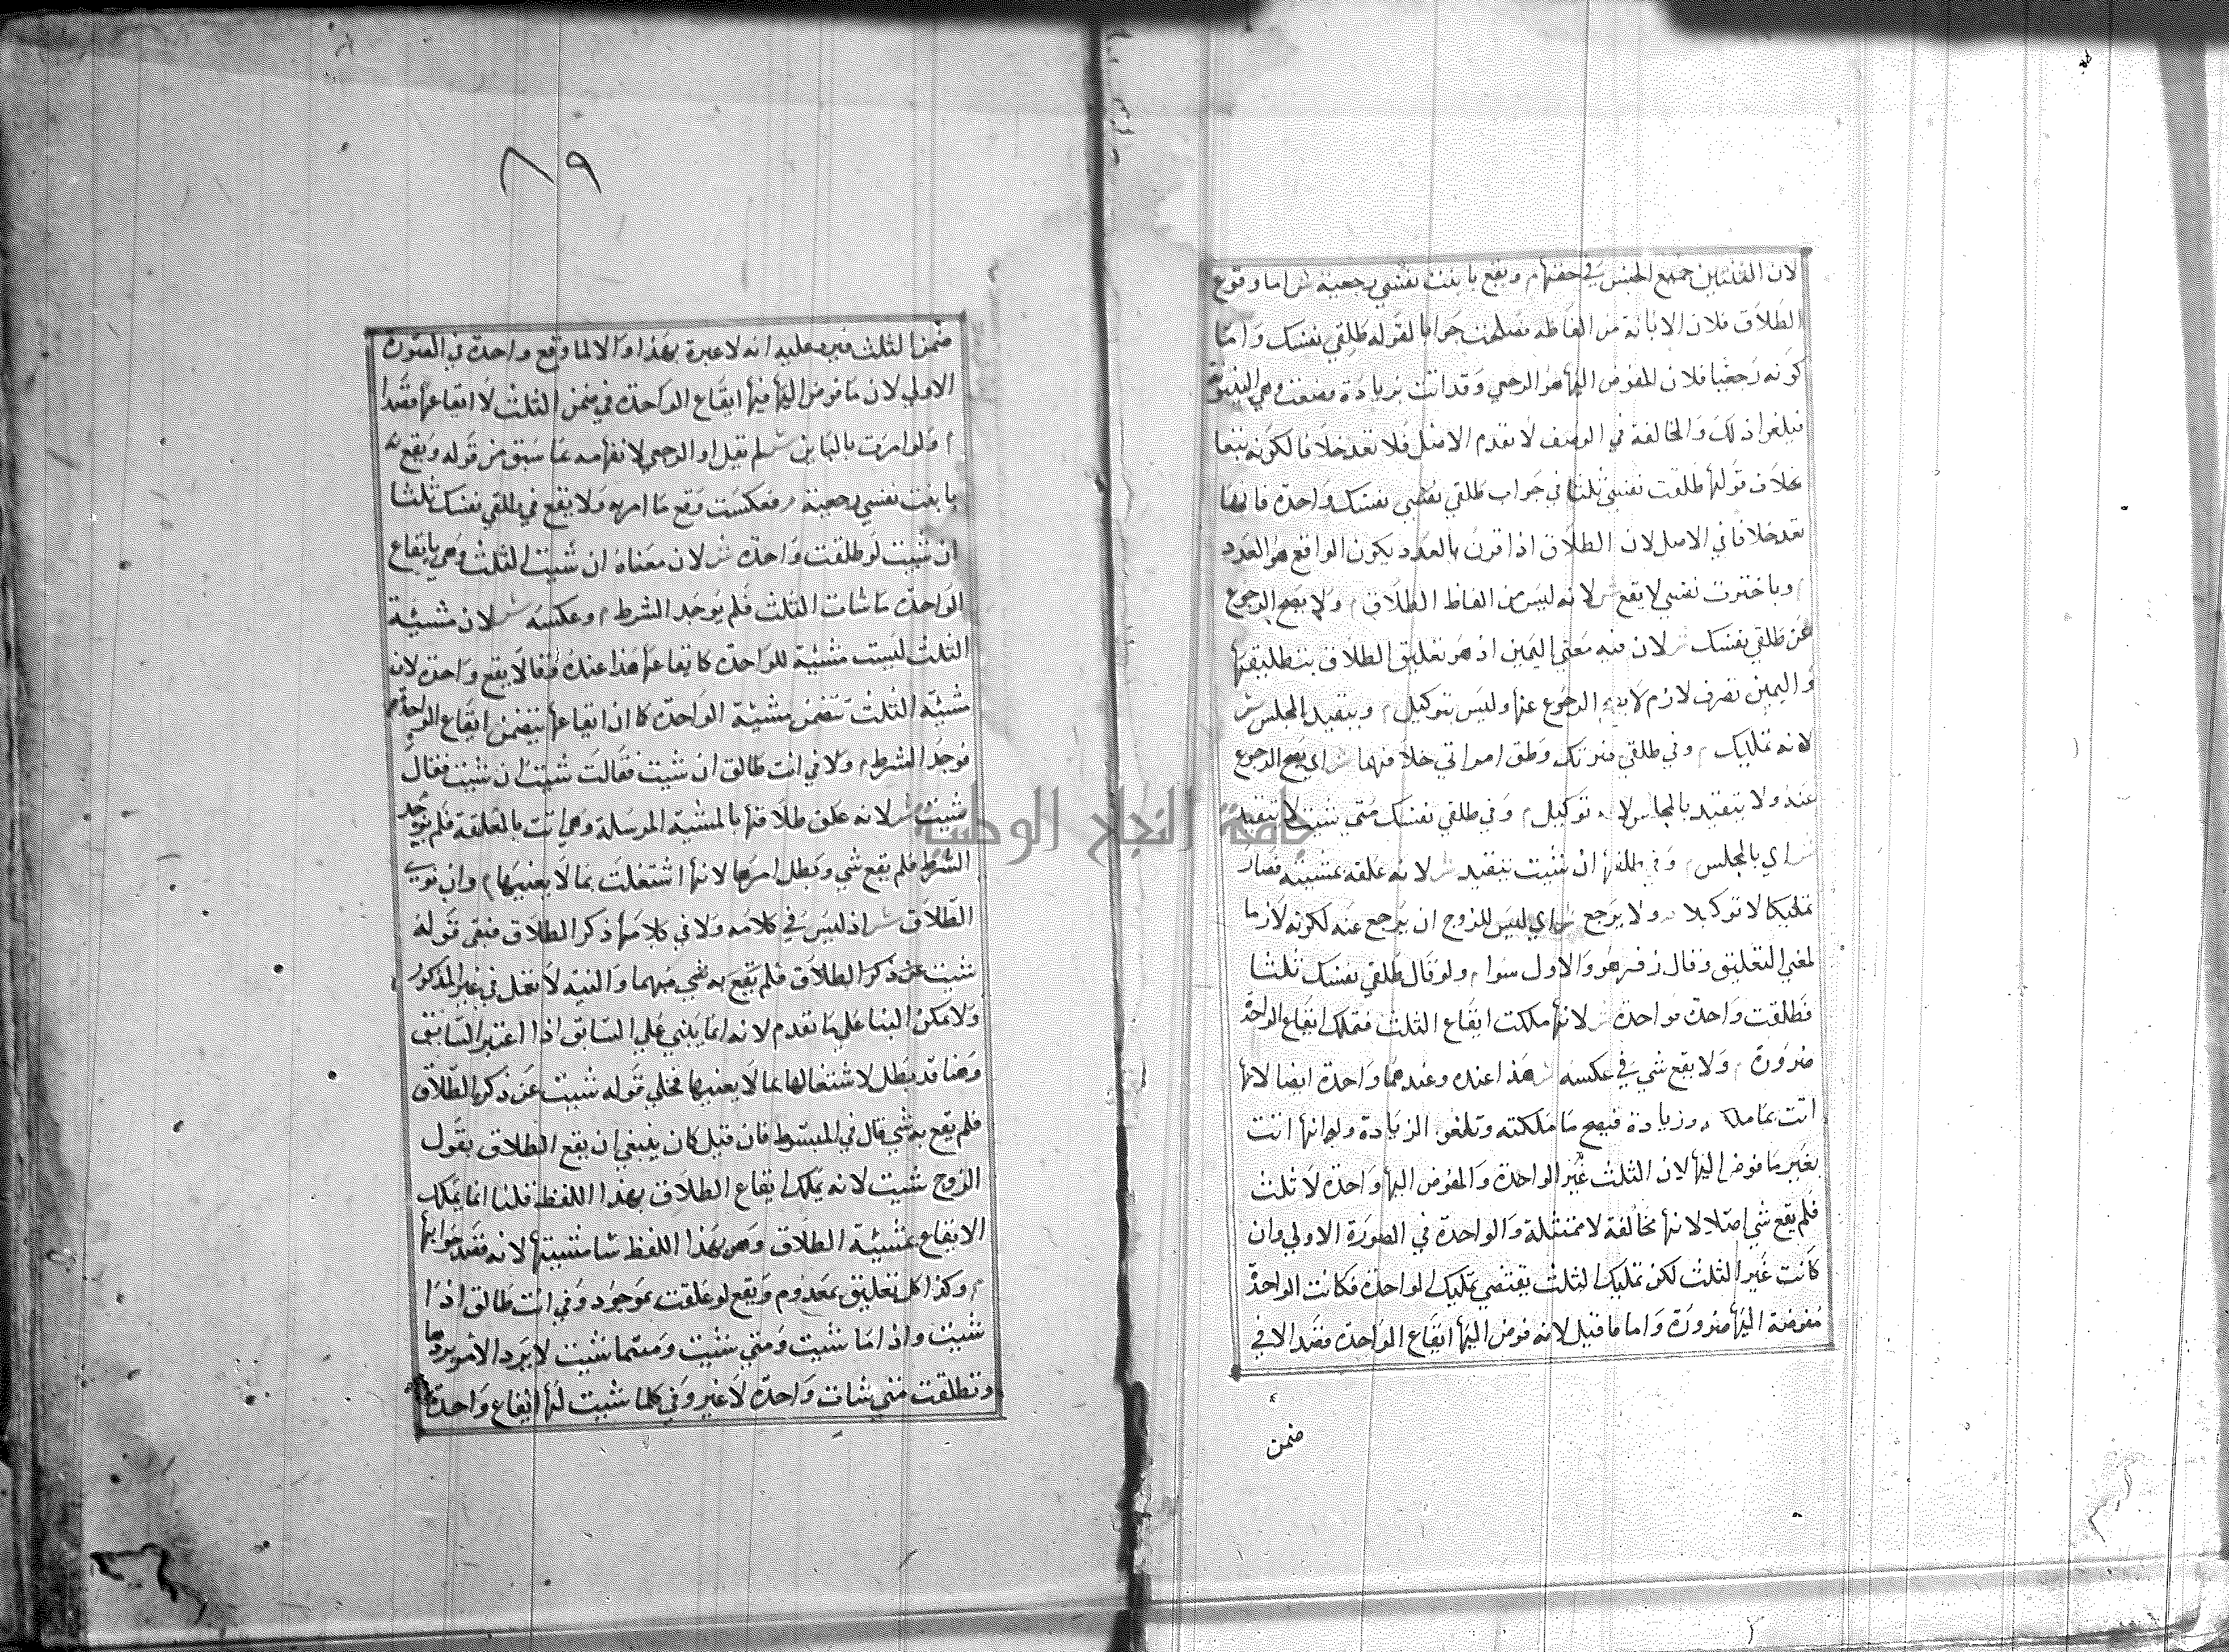 لان الثنتين جميع الجنس في حقها م ويقع بابنت نفسي رجعية ش اما وقوع
الطلاق فلان الابانة من الفاظه فصلحت جوابا لقوله طلقي نفسك واما
كونه رجعيا فلان المفوض اليها هو الرجعي وقد اتت بزيادة وصف وهي البينونة
فيلغوا ذلك والمخالفة في الوصف لا تعدم الاصل فلا تعد خلافا لكونه تبعا
بخلاف قولها طلقت نفسي ثلثا في جواب طلقي نفسك واحدة فانها
تعد خلافا في الاصل لان الطلاق اذا قرن بالعدد يكون الواقع هو العدد
م وباخترت نفسي لا يقع ش لانه ليس من الفاظ الطلاق م ولا يصح الرجوع
عن طلقي نفسك ش لان فيه معني اليمين اذ هو تعليق الطلاق بتطليقها
واليمين تصرف لازم لا يصح الرجوع عنها وليس بتوكيل م ويتقيد بالمجلس ش
لانه تمليك م وفي طلقي ضرتك وطلق امراتي خلافهما ش اي يصح الرجوع
عنه ولا يتقيد بالمجلس لانه توكيل م وفي طلقي نفسك متي شيت لا يتقيد
ش اي بالمجلس م وفي طلقها ان شيت يتقيد ش لانه علقه بمشيته فصار
تمليكا لا توكيلا م ولا يرجع ش اي ليس للزوج ان يرجع عنه لكونه لازما
لمعني التعليق وقال زفر هو والاول سوا م ولو قال طلقي نفسك ثلثا
فطلقت واحدة فواحدة ش لانها ملكت ايقاع الثلث فتملك ايقاع الواحدة
ضرورة م ولا يقع شي في عكسه ش هذا عنده وعندهما واحدة ايضا لانها
اتت بما ملكته وزيادة فيصح ما ملكته وتلغو الزيادة وله انها اتت
بغير ما فوض اليها لان الثلث غير الواحدة والمفوض اليها واحدة لا ثلث
فلم يقع شي اصلا لانها مخالفة لا ممتثلة والواحدة في الصورة الاولي وان
كانت غير الثلث لكن تمليك الثلث يقتضي تمليك الواحدة فكانت الواحدة
مفوضة اليها ضرورة واما ما قيل لانه فوض اليها ايقاع الواحدة قصدا لا في
ضمن
٨٩
ضمن الثلث فيرد عليه انه لا عبرة بهذا والا لما وقع واحدة في الصورة
الاولي لان ما فوض اليها فيها ايقاع الواحدة في ضمن الثلث لا ايقاعها قصدا
م ولو امرت بالباين ش لم تقل او الرجعي لانفهامه عما سبق من قوله ويقع
بابنت نفسي رجعية م فعكست وقع ما امر به ولا يقع في طلقي نفسك ثلثا
ان شيت لو طلقت واحدة ش لان معناه ان شيت الثلث وهي بايقاع
الواحدة ما شات الثلث فلم يوجد الشرط م وعكسه ش لان مشيئة
الثلث ليست مشيئة للواحدة كايقاعها هذا عنده وقالا يقع واحدة لان
مشيئة الثلث تتضمن مشيئة الواحدة كما ان ايقاعها يتضمن ايقاع الواحدة
فوجد الشرط م ولا في انت طالق ان شيت فقالت شيت ان شيت فقال
شيت ش لانه علق طلاقها بالمشية المرسلة وهي اتت بالمعلقة فلم يوجد
الشرط فلم يقع شي وبطل امرها لانها اشتغلت بما لا يعنيها م وان نوي
الطلاق ش اذ ليس في كلامه ولا في كلامها ذكر الطلاق فبقي قوله
شيت عن ذكر الطلاق فلم يقع به شي مبهما والنية لا تعمل في غير المذكور
ولا يمكن البنا علي ما تقدم لانه انما يبني علي السابق اذا اعتبر السابق
وهنا قد بطل لاشتغالها بما لا يعنيها فخلي قوله شيت عن ذكر الطلاق
فلم يقع به شي قال في المبسوط فان قيل كان ينبغي ان يقع الطلاق بقول
الزوج شيت لانه يملك ايقاع الطلاق بهذا اللفظ قلنا انما يملك
الايقاع بمشيئة الطلاق وهو بهذا اللفظ شا مشيتها لانه قصد جوابها
م وكذا كل تعليق بمعدوم ويقع لو علقت بموجود وفي انت طالق اذا
شيت واذا ما شيت ومتي شيت ومتما شيت لا يرد الامر بردها
وتطلقت متي شات واحدة لا غير وفي كلما شيت لها ايقاع واحدة